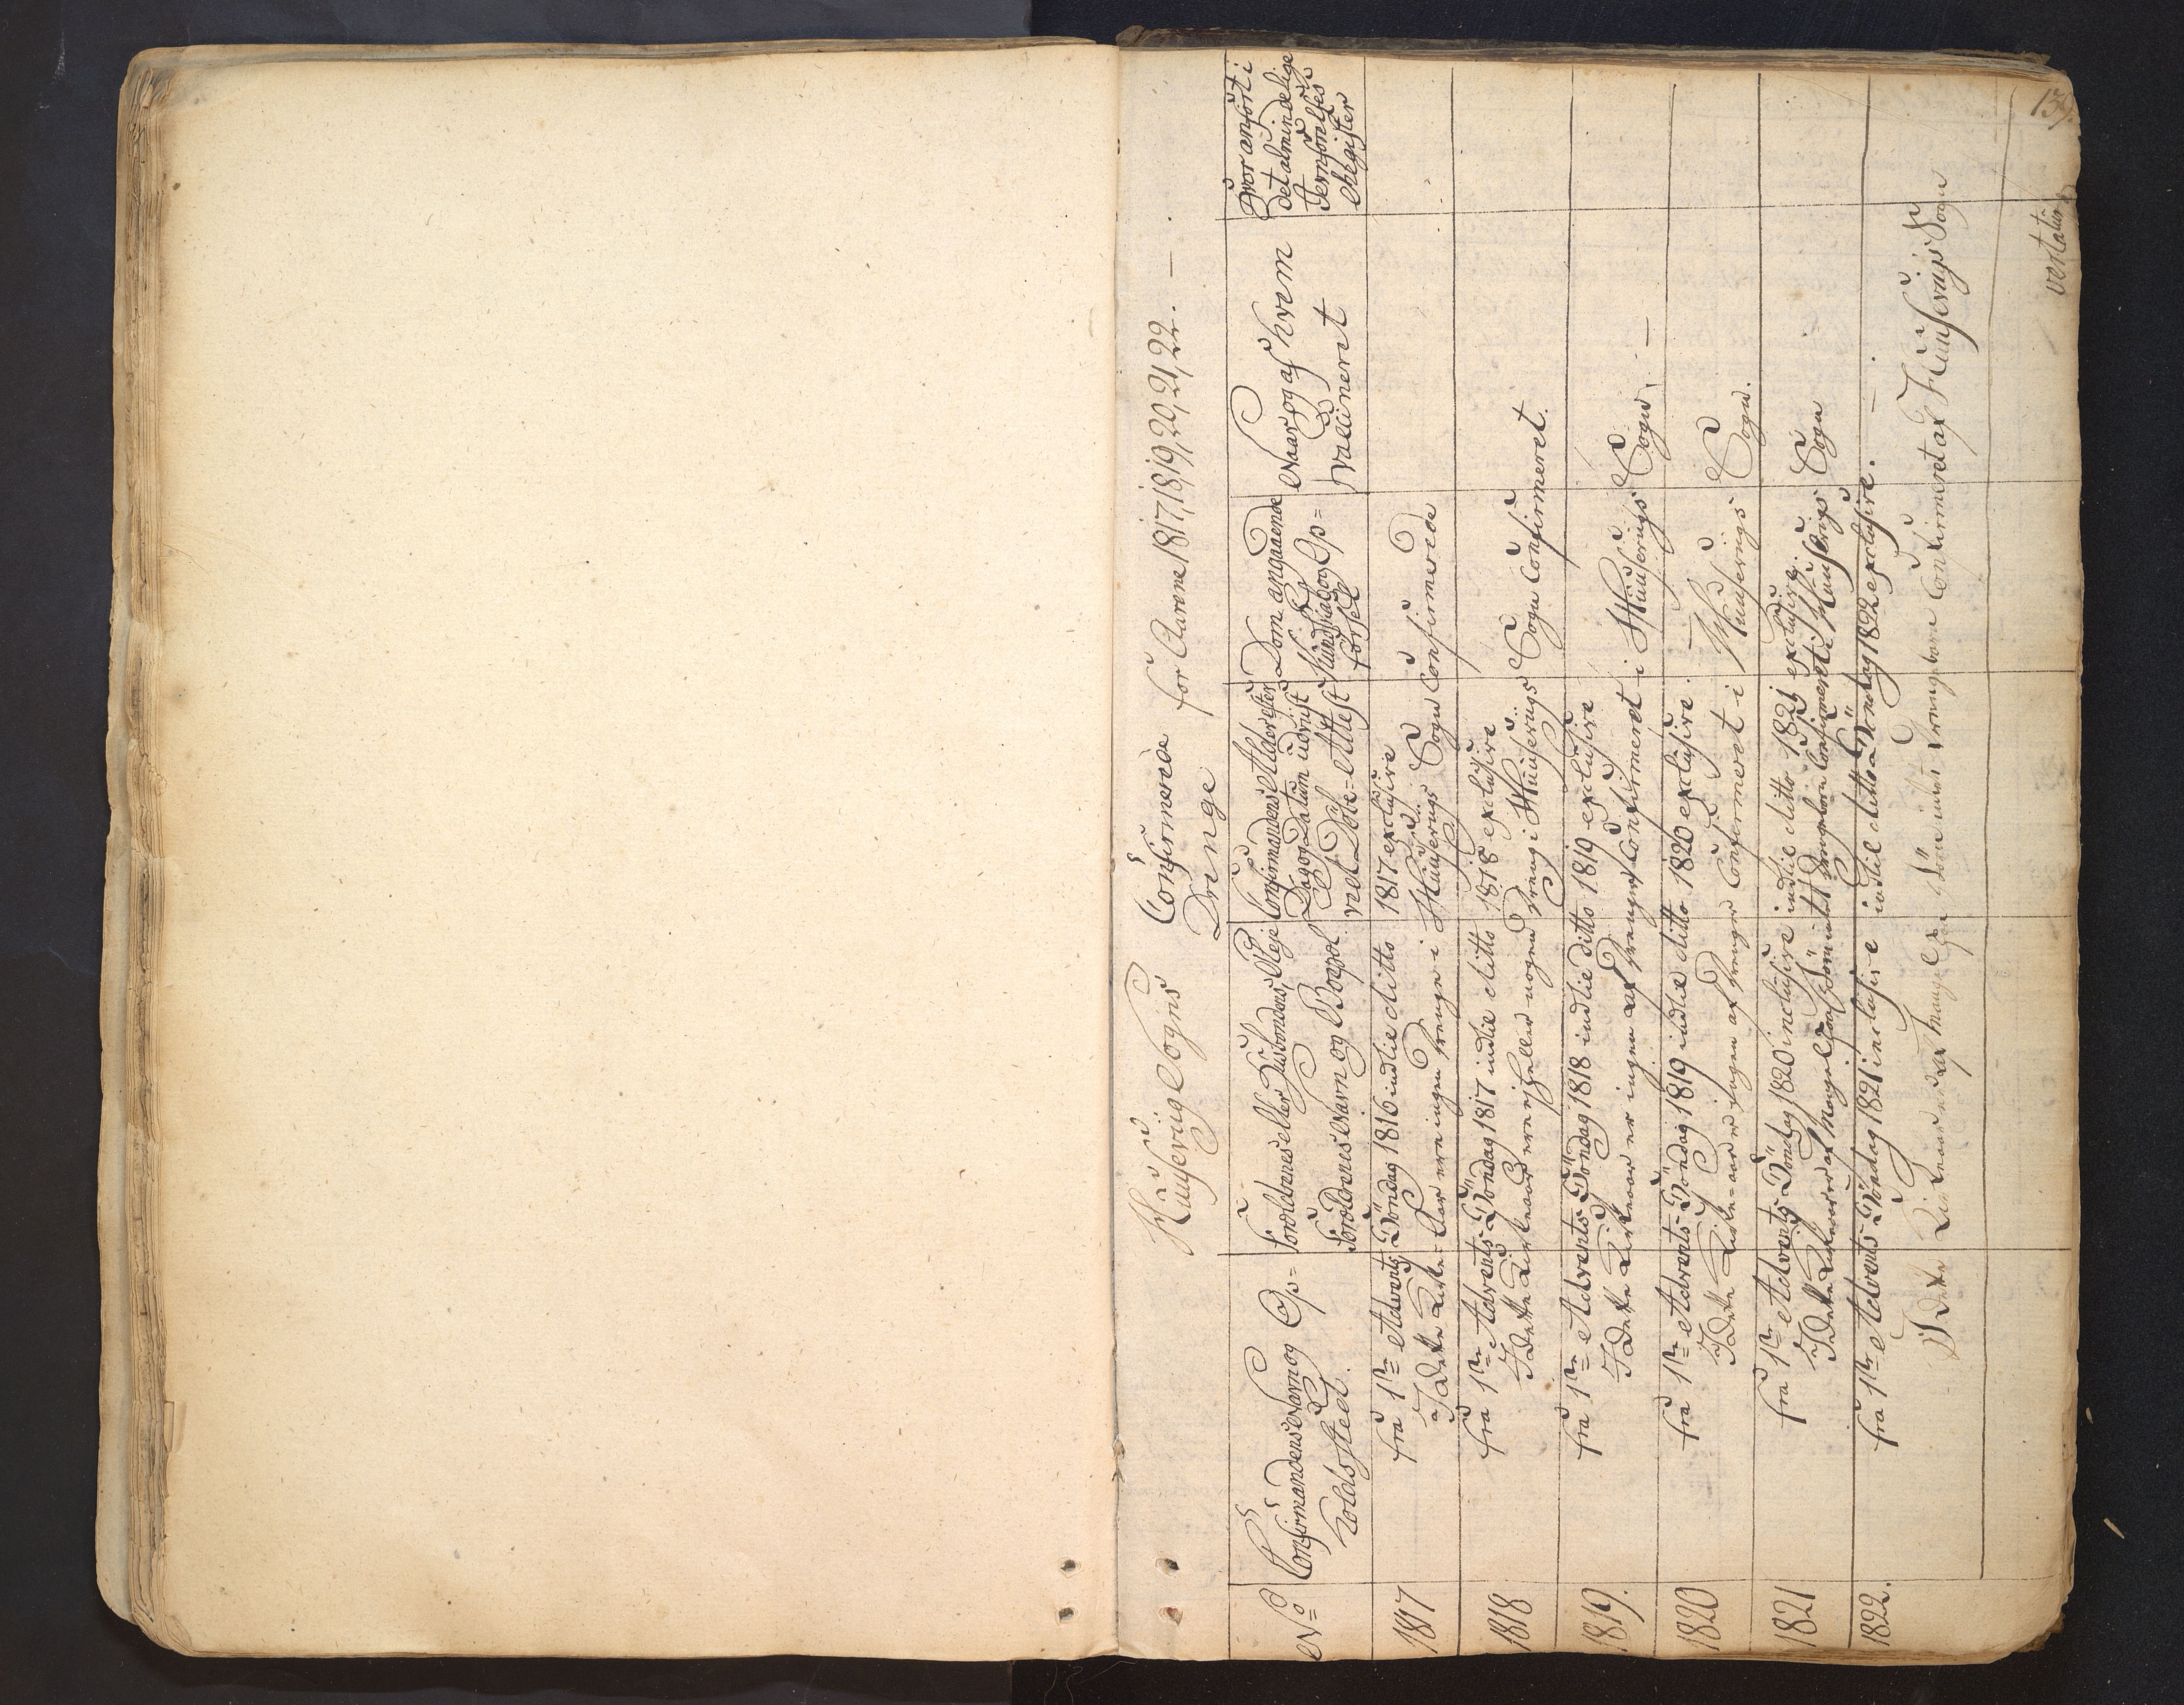 139.
Huuserüg Sogns Confirmerede for Aarene 1817, 1819, 20, 21, 22. —
Drenge
No
Confirmandens Navn og Op=
holdssted.
Forældrenes eller Huusbondens, Pleje
Forældrenes Navn og Bopæl
Confirmandens Alder efter
Dag og Datum udviist
ved Döbe=Attest
Dom angaaende
Kundskab og Op=
försel
Naar og af hvem
vaccineret
Hvor anfört i
det almindelige
Jevnförelses
Register
1817
fra 1ste Advents Söndag 1816 indtil ditto 1817 exclusive
I dette Kirke=Aar ere ingen Drenge i Huuserugs Sogn Confirmerede
1818
fra 1ste Advents Söndag 1817 indtil ditto 1818 exclusive
I dette Kirkeaar ere ej heller nogen Dreng i Huuserugs Sogn Confirmeret.
1819.
fra 1ste Advents Söndag 1818 indtil ditto 1819 exclusive
I dette Kirkeaar er ingen af Drenger Confirmeret i Huuserugs Sogn. —
1820
fra 1ste Advents Söndag 1819 indtil ditto 1820 exclusive.
I dette Kirke=aar er ingen af Drenger Confirmeret i Huuserugs Sogn.
1821
fra 1ste Advents Söndag 1820 inclusive indtil ditto 1821 exclusive.
I dette Kirkeaar er af Mangel paa Döm intet Drengebarn Confirmeret i Huuserugs Sogn
1822.
fra 1ste Advents Söndag 1821 inclusive indtil ditto Söndag 1822 exclusive. —
I dette Kirkeaar er af Mangel paa intet Drengebarn Confirmeret af Huuserugs Sogn
vertatur